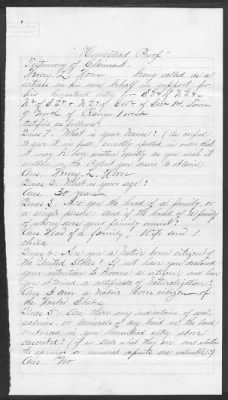 "Homestead Proof"
Testimony of Claimant.
Henry L. Horr being called as a
witness in his own behalf in support for
his Homestead Entry for S 2 4 of N 2 4 -
N 2 of S 2 4 - N 2 of Sw 4 of Sec 14, Town
North of Range 1 west
testifies as follows.
Ques 1. What is your Name? (Be careful
to give it in full, correctly spelled, in order that
it may be here written exactly as you wish it
written in the Patent you desire to obtain).
Ans. Henry L. Horr
Ques 2. What is your age?
Ans. 30 years
Ques 3. Are you the head of a family, or
a single person; and if the head of a family
of whom does your family consist?
Ans Head of a family. Wife and 1
child.
Ques 4. Are you a native born citizen of
the United States? If not, have you declared
your intention to become a citizen, and have
you obtained a certificate of naturalization?
Ans I am a Native born citizen of
the United States
Ques 5. Are there any indications of coal,
salines, or minerals of any kind on the land
embraced in your homestead entry above
described? (if so state what they are, and whether
the springs or mineral deposits are valuable?)
Ans. No